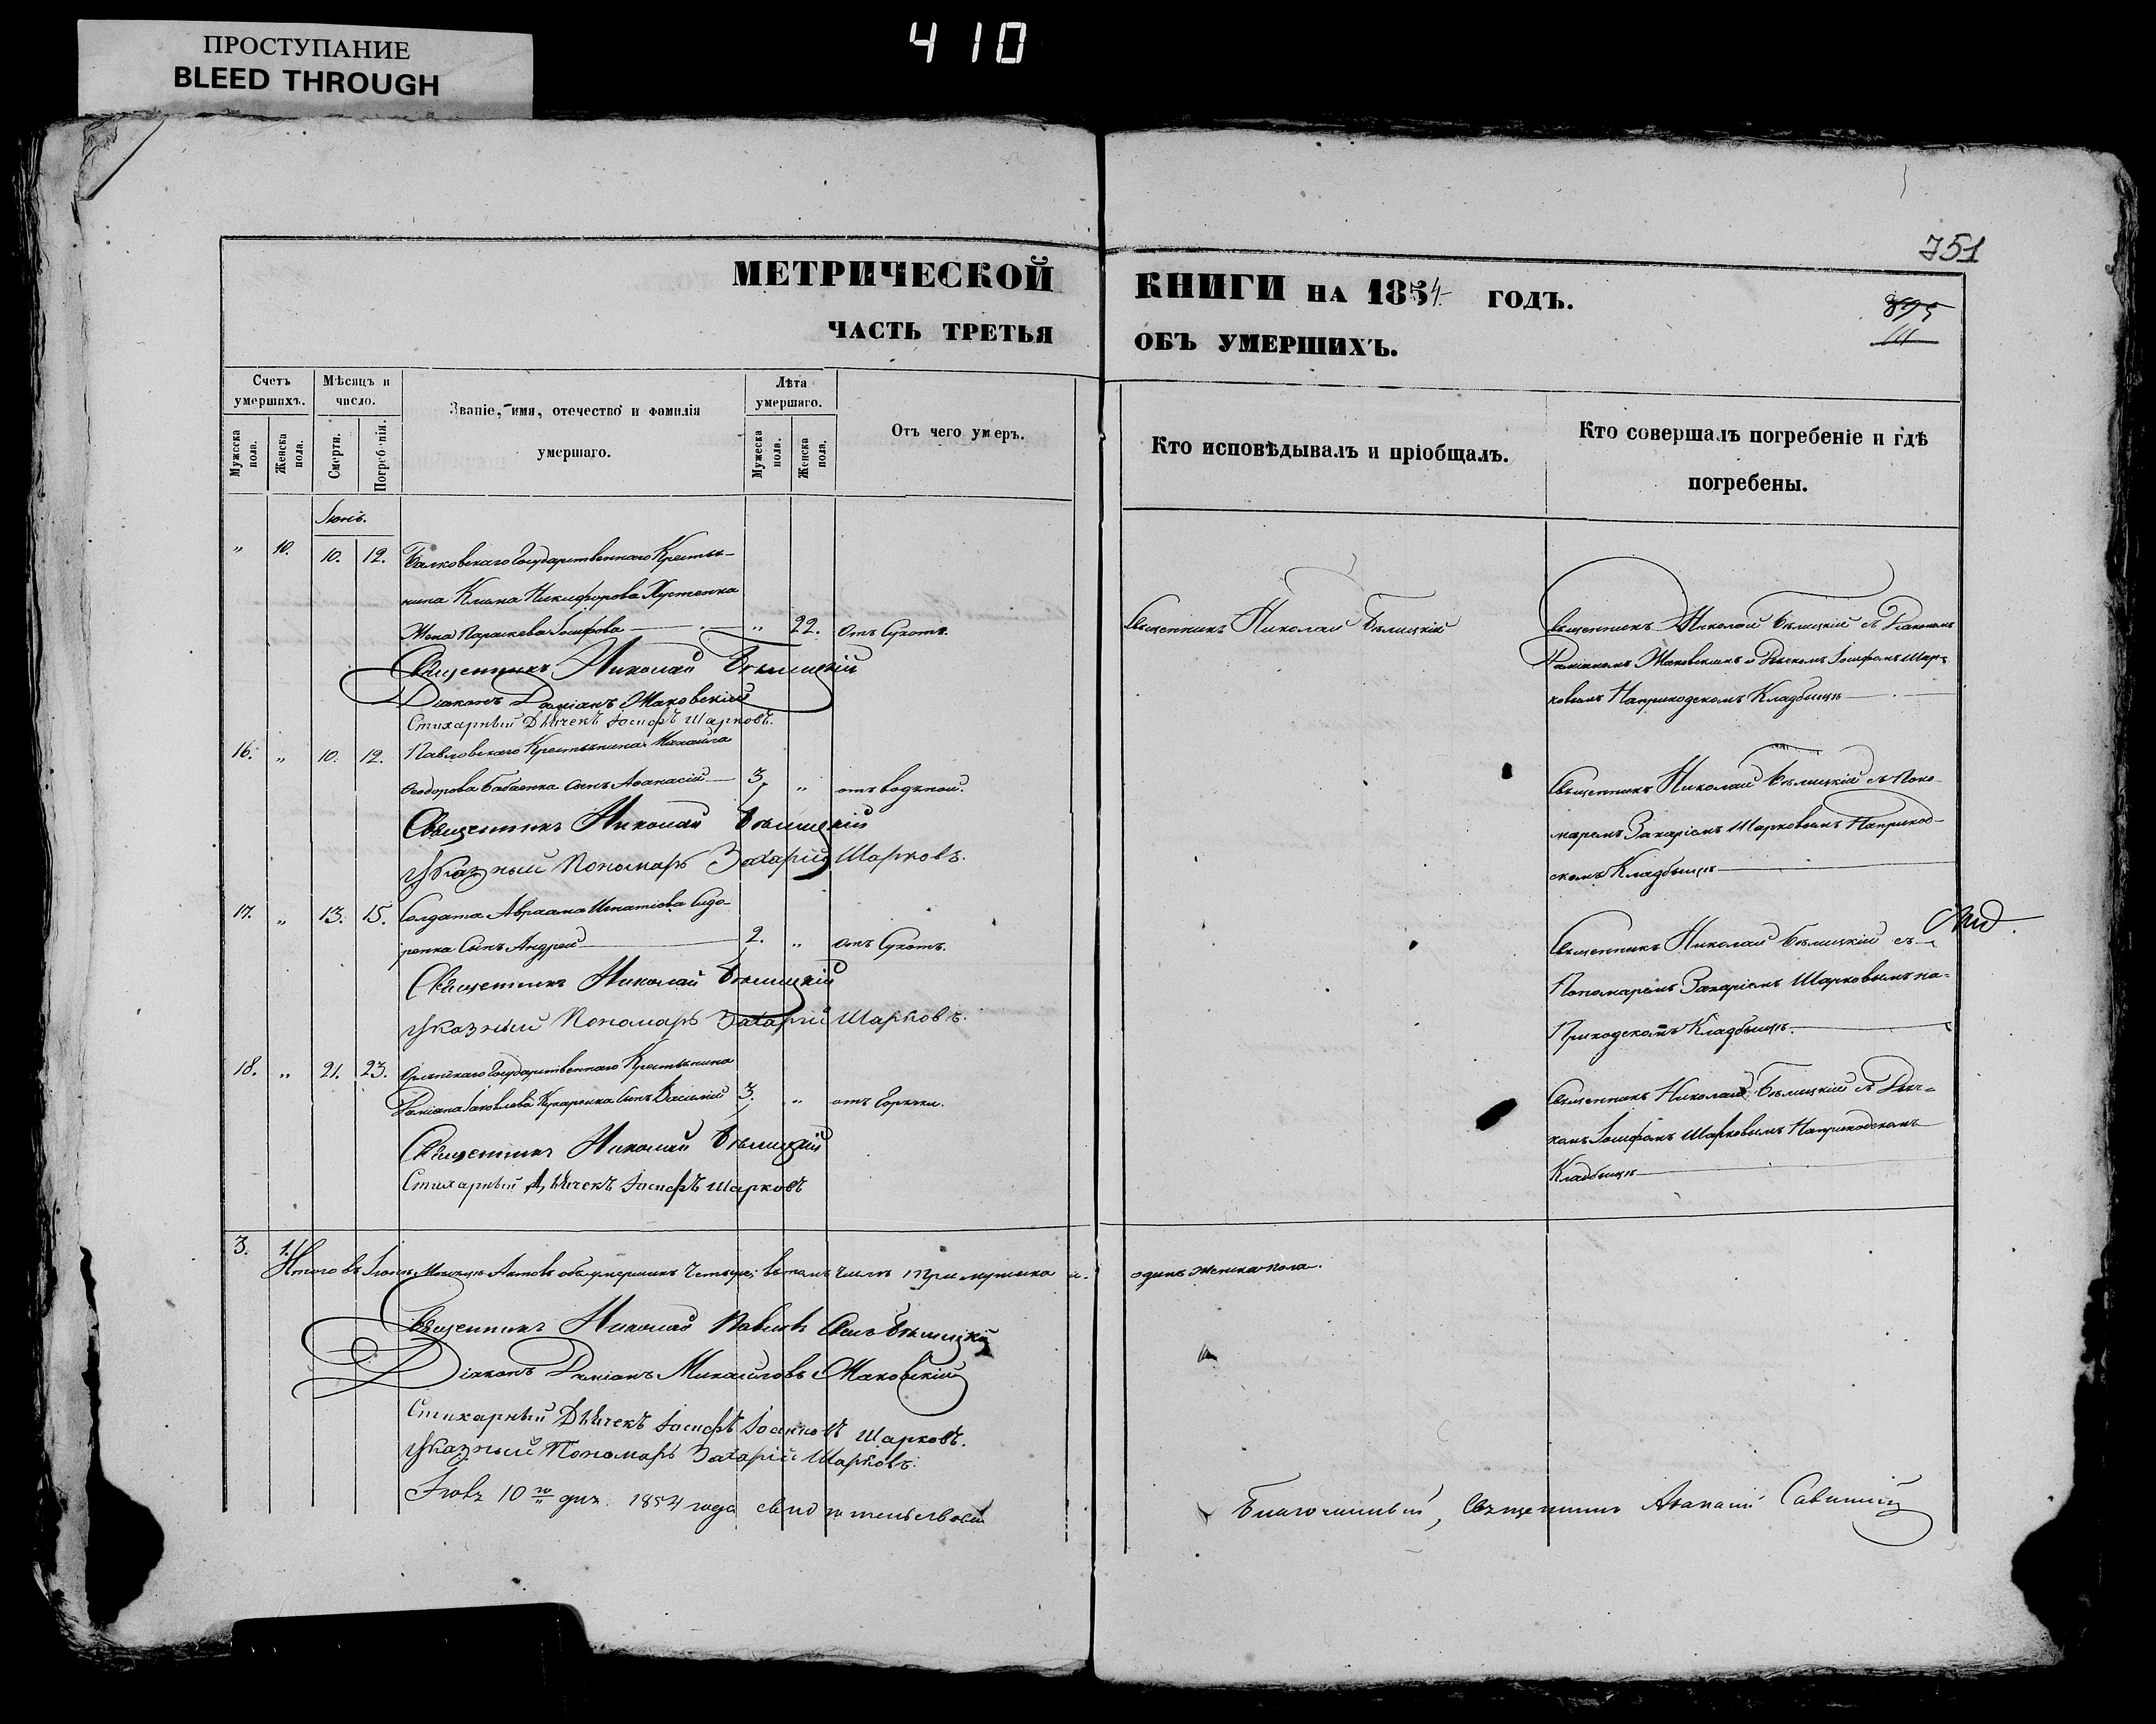 ПРОСТУПАНИЕ
BLEED THROUGH
410
751
МЕТРИЧЕСКОЙ КНИГИ НА 1854 ГОДЪ.
ЧАСТЬ ТРЕТЬЯ ОБЪ УМЕРШИХЪ.
Счетъ умершихъ.
Мужеска пола.
Женска пола.
Мѣсяцъ и число.
Смерти.
Погребенія.
Званіе, имя, отечество и фамилія умершаго.
Лѣта умершаго.
Мужеска пола.
Женска пола.
Отъ чего умеръ.
Кто исповѣдывалъ и пріобщалъ.
Кто совершалъ погребеніе и гдѣ погребены.
Іюнь.
" 10. 10. 12. Государственнаго Крестья-
нина Клима Никифорова
Жена Параскева Іосифова " 22. Отъ Сухотъ.
Священникъ Николай Бѣлицкій
Священникъ Николай Бѣлицкій съ Діакономъ
Даміаномъ Маковскимъ и Дьячкомъ Іосифомъ Шар-
ковымъ На приходскомъ Кладбищѣ
Священникъ Николай Бѣлицкій
Діаконъ Даміанъ Маковскій
Стихарный Дьячекъ Іосифъ Шарковъ.
16. " 10. 12. Павловскаго Крестьянина Михаила
Ѳеодорова Бабаенка сынъ Аѳанасій 3. " отъ водяной.
Священникъ Николай Бѣлицкій съ Поно-
маремъ Захаріемъ Шарковымъ На приход-
скомъ Кладбищѣ
Священникъ Николай Бѣлицкій
Указный Пономарь Захарій Шарковъ.
17. " 13. 15. Солдата Авраама Игнатіева Сидо-
ренка Сынъ Андрей 2. " отъ Сухотъ.
Священникъ Николай Бѣлицкій съ
Пономаремъ Захаріемъ Шарковымъ на
Приходскомъ Кладбищѣ.
Священникъ Николай Бѣлицкій
Указный Пономарь Захарій Шарковъ.
18. " 21. 23. Государственнаго Крестьянина
Даміана Іаковлева Кухаренка Сынъ Василій 3. " отъ Горячки.
Священникъ Николай Бѣлицкій съ Дьяч-
комъ Іосифомъ Шарковымъ На приходскомъ
Кладбищѣ
Священникъ Николай Бѣлицкій
Стихарный Дьячекъ Іосифъ Шарковъ
3. 1. Итого въ Іюнѣ Мѣсяцѣ Актовъ объ умершихъ Четыре; въ томъ числѣ три мужеска и одинъ женска пола.
Священникъ Николай Павловъ Сынъ Бѣлицкій
Діаконъ Даміанъ Михайловъ Маковскій
Стихарный Дьячекъ Іосифъ Іоанновъ Шарковъ.
Указный Пономарь Захарій Шарковъ.
10го дня 1854 года свидѣтельствовалъ
Благочинный, Священникъ Аѳанасій